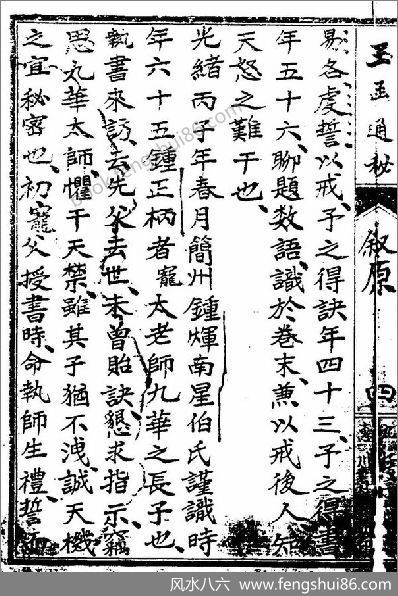 玉函通秘
叙原
四
易各虔誓以戒予之得訣年四十三予之得書
年五十六聊題数語識於卷末兼以戒後人知
天怒之難干也
光緒丙子年春月簡州鍾煇南星伯氏謹識時
年六十五鍾正柄者寵太老師九華之長子也
執書來訪云先父去世未曾貽訣懇求指示竊
思九華太師懼干天禁雖其子猶不洩誠天機
之宜秘密也初寵父授書時命執師生禮誓
book.fengshui86.com
风水八六 www.fengshui86.com